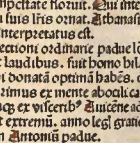 npestate floruit. Qui inte
luis lr̃is ornat. Athanasi
interpretatus est.
ectioni ordinarie padue lõ
laudibus. fuit homo bil
bonatã optimũ habẽs.
rimus ex mente abocu
ex visceribꝰ Auicẽne
extremũ. anno leg̃l grati
Antoniũ padue.